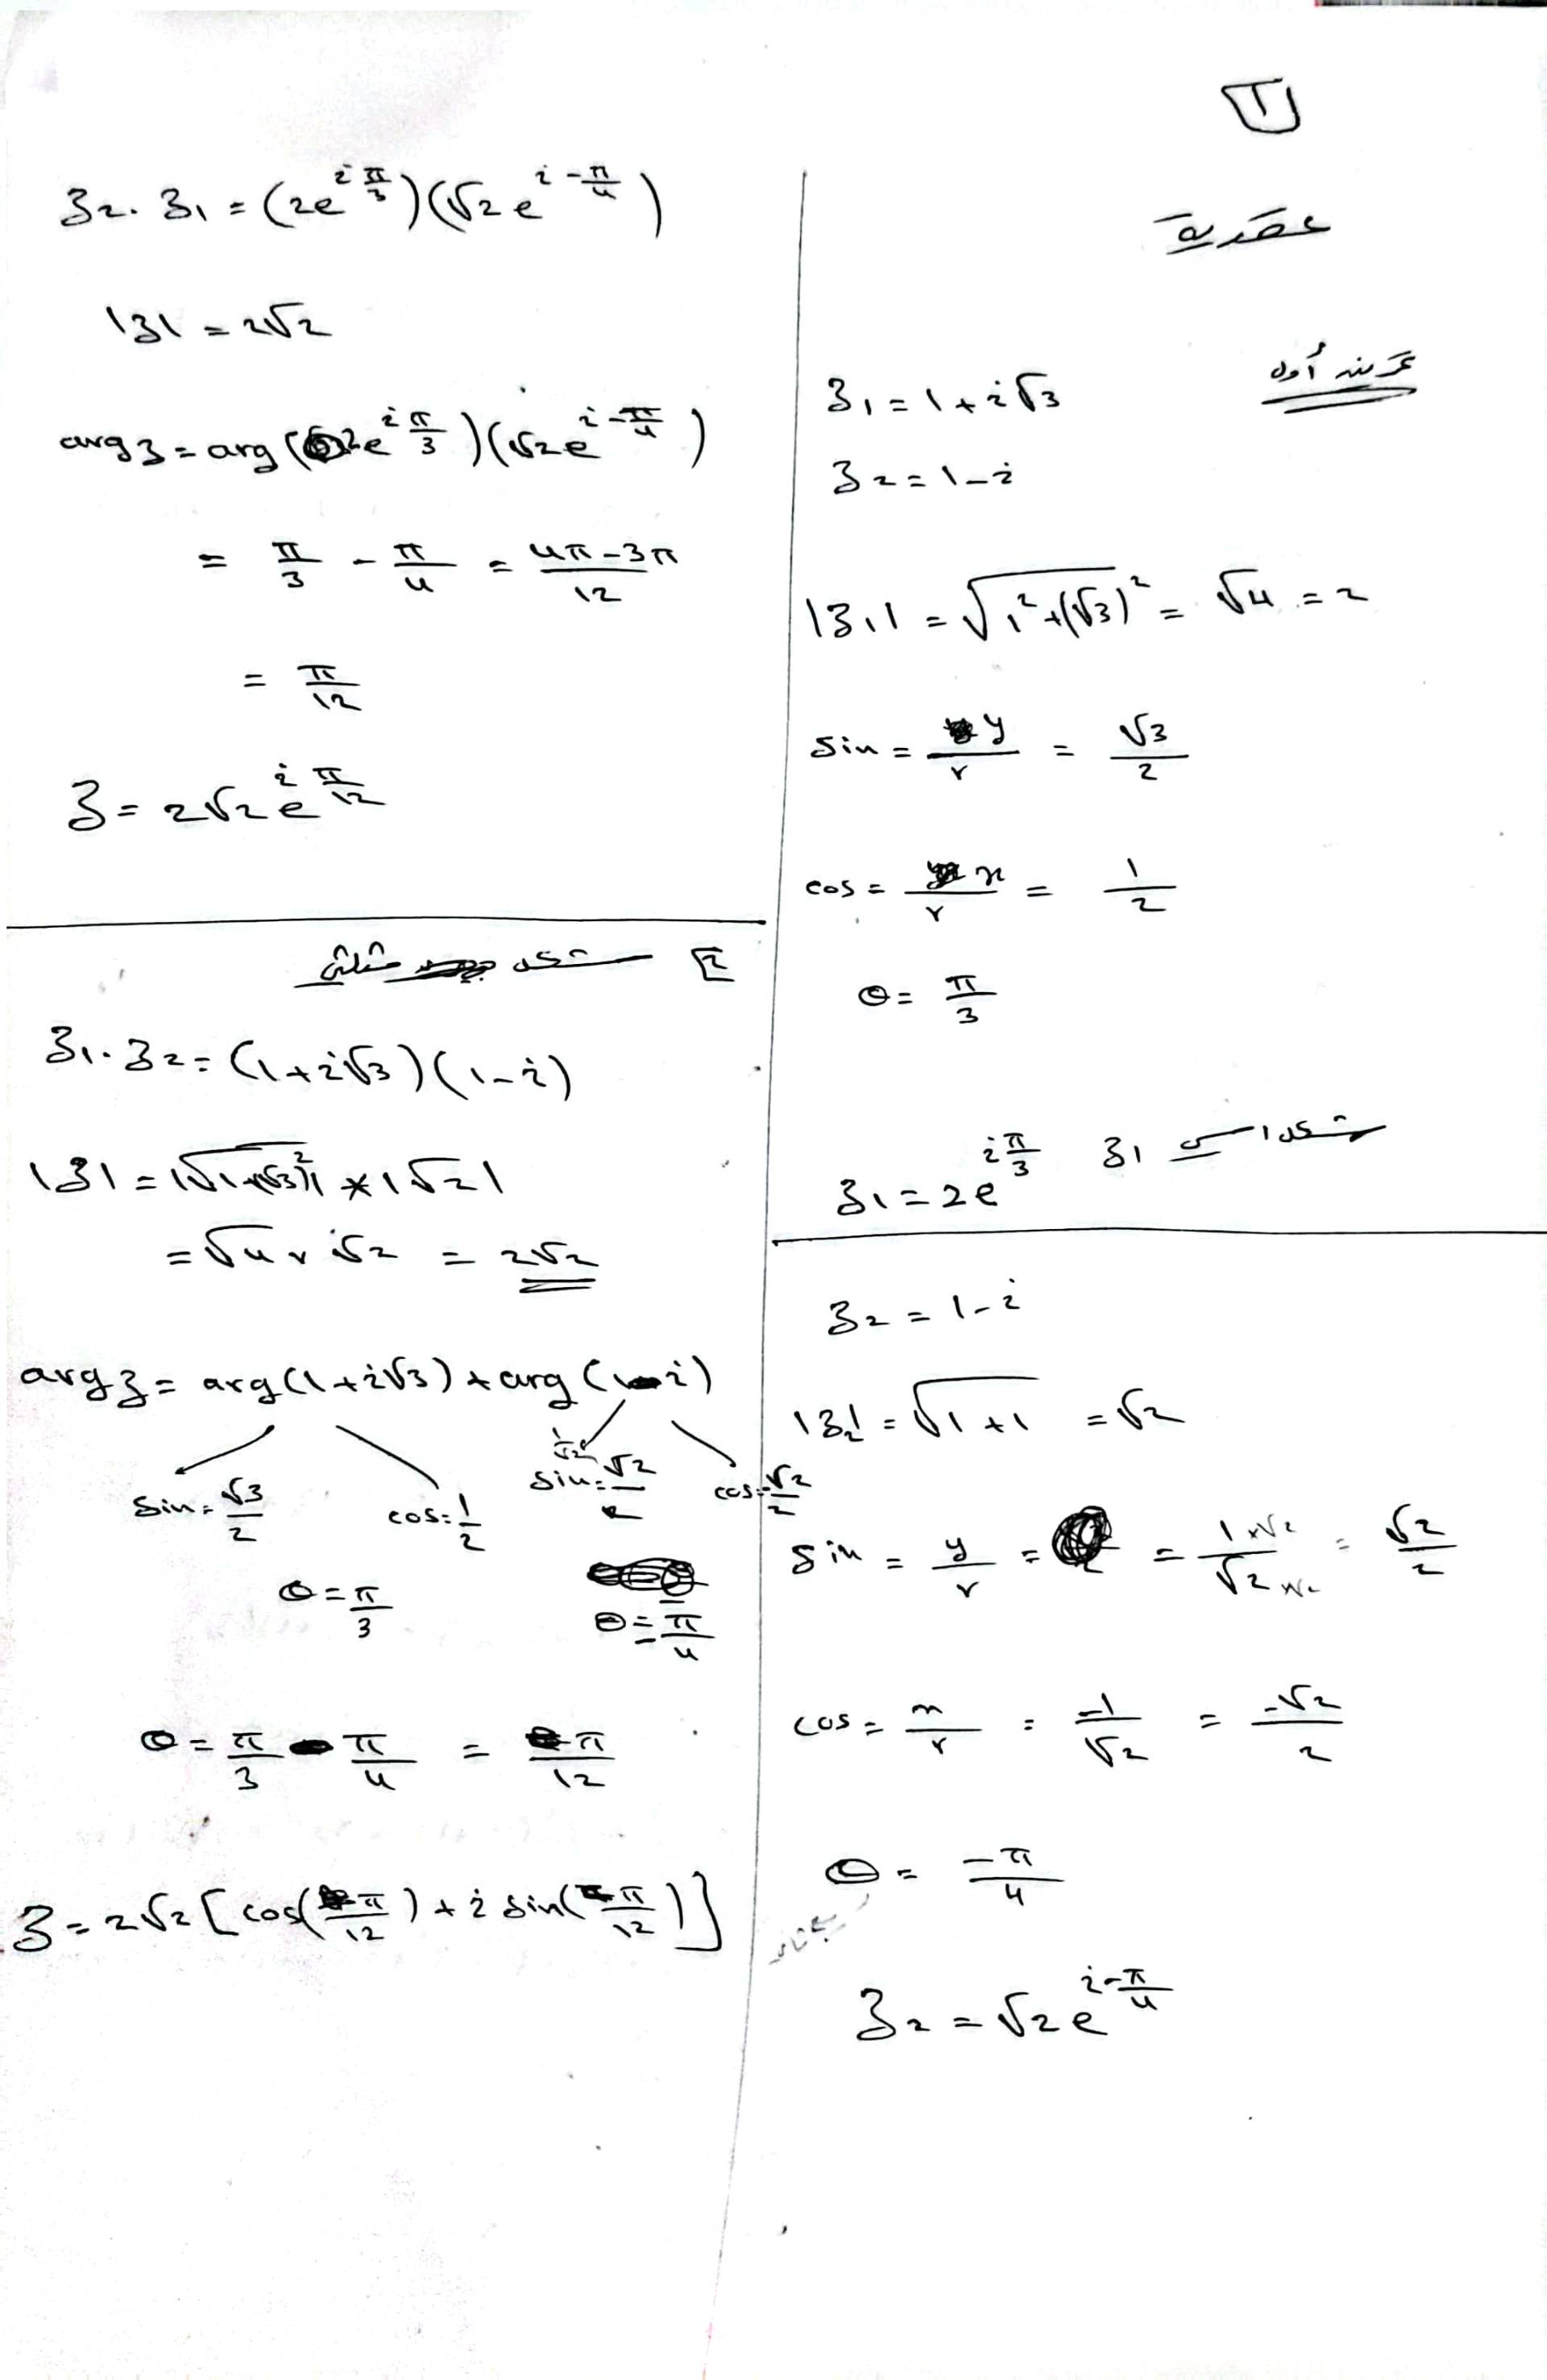 1
عقدية
تمرين أول
z₁ = 1 + i√3
z₂ = 1 - i
|z₁| = √(1² + (√3)²) = √4 = 2
sin = y/r = √3/2
cos = x/r = 1/2
θ = π/3
شكل اسي z₁
z₁ = 2e^(i π/3)
z₂ = 1 - i
|z₂| = √(1 + 1) = √2
sin = y/r = = (1×√2)/(√2×√2) = √2/2
cos = x/r = -1/√2 = -√2/2
θ = -π/4
z₂ = √2 e^(i -π/4)
z₂ . z₁ = (2e^(i π/3))(√2 e^(i -π/4))
|z| = 2√2
arg z = arg (2e^(i π/3))(√2 e^(i -π/4))
= π/3 - π/4 = (4π - 3π)/12
= π/12
z = 2√2 e^(i π/12)
2 شكل مثلثي
z₁ . z₂ = (1 + i√3)(1 - i)
|z| = |√(1 + (√3)²)| * |√2|
= √4 × √2 = 2√2
arg z = arg(1 + i√3) + arg(1 - i)
sin = √3/2 cos = 1/2 sin = √2/2 cos = -√2/2
θ = π/3 θ = -π/4
θ = π/3 - π/4 = π/12
z = 2√2 [cos(π/12) + i sin(π/12)]